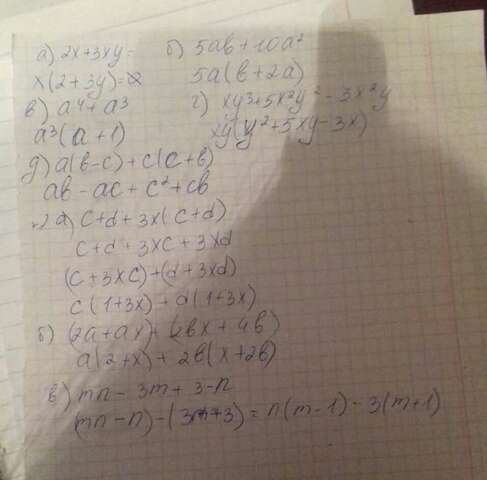 а) 2x+3xy=
x(2+3y)=
б) 5ab+10a²
5a(b+2a)
в) a⁴+a³
a³(a+1)
г) xy³+5x²y²-3x²y
xy(y²+5xy-3x)
д) a(b-c)+c(c+b)
ab-ac+c²+cb
2 а) c+d+3x(c+d)
c+d+3xc+3xd
(c+3xc)+(d+3xd)
c(1+3x)+d(1+3x)
б) (2a+ax)+(2bx+4b)
a(2+x)+2b(x+2b)
в) mn-3m+3-n
(mn-n)-(3m+3)=n(m-1)-3(m+1)